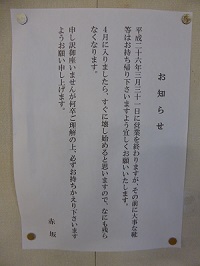 お知らせ
平成二十六年三月三十一日に営業を終わりますが、その前に大事な靴
等はお持ち帰り下さいますよう宜しくお願いいたします。
４月に入りましたら、すぐに壊し始めると思いますので、なにも残ら
なくなります。
申し訳御座いませんが何卒ご理解の上、必ずお持ちかえり下さいます
ようお願い申し上げます。
赤坂